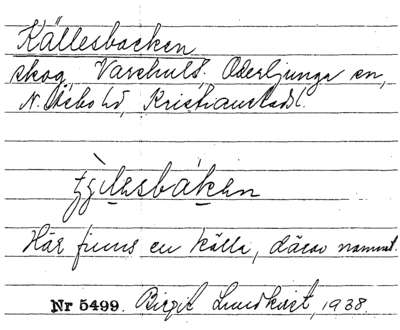 Källesbacken
skog, Varshult, Oderljunga sn,
N. Åsbo hd, Kristianstads l.
Här finns en källa, därav namnet.
Nr 5499. Birgit Lundkvist, 1938.